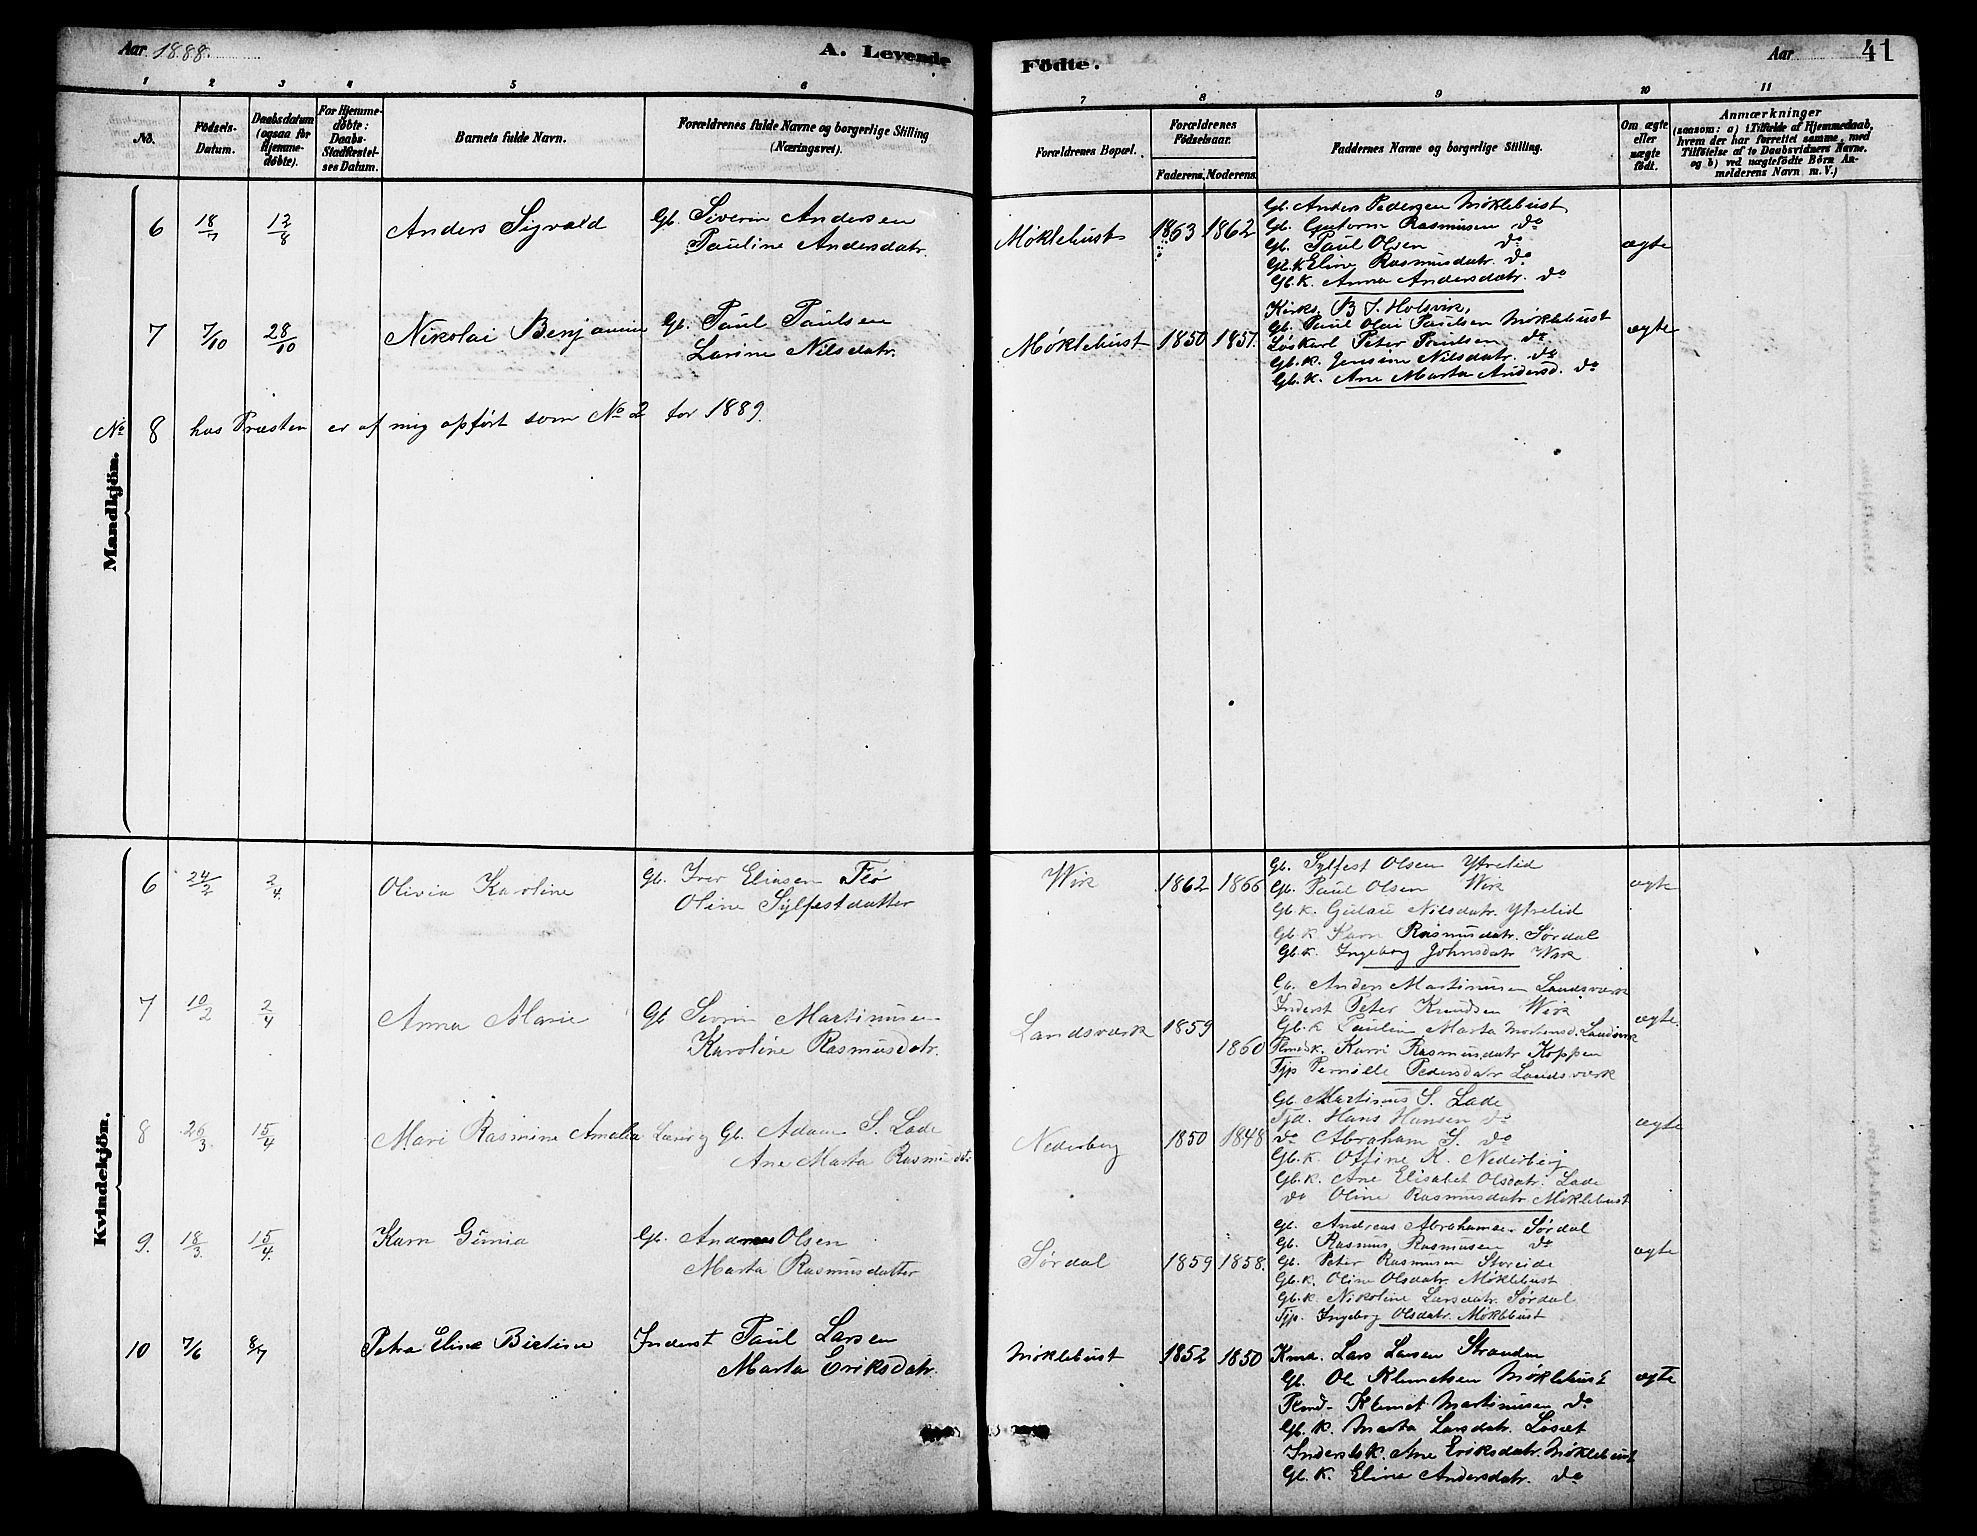 Aar 1888.
A. Levende
Födte.
Aar
41
1 2 3 4 5 6
7 8 9 10 11
No.
Födsels-Datum.
Daabsdatum (ogsaa for Hjemme-døbte).
For Hjemme-døbte: Daabs-Stadfæstel-ses Datum.
Barnets fulde Navn.
Forældrenes fulde Navne og borgerlige Stilling (Næringsvei).
Forældrenes Bopæl.
Forældrenes Födselsaar.
Faderens. Moderens.
Faddernes Navne og borgerlige Stilling.
Om ægte eller uægte födt.
Anmærkninger
(saasom: a) i Tilfælde af Hjemmedaab,
hvem der har forrettet samme, med
Tilföielse af to Daabsvidners Navne.
og b) ved uægtefödte Börn An-
melderens Navn m. V.)
Mandkjön.
6 18/7 12/8 Anders Sigvald Gb. Siverin Andersen
Pauline Andersdatr.
Møklebust 1863 1862
Gb. Anders Pedersen Møklebust
Gb. Gutorm Rasmusen do
Gb. Paul Olsen do
Gb.K Eline Rasmusdatr. do
Gb.K. Anna Andersdatr. do
ægte
7 7/10 28/10 Nikolai Benjamin Gb. Paul Paulsen
Larine Nilsdatr.
Møklebust 1850 1851.
Kirks. B J. Holsvik,
Gb. Paul Olai Paulsen Møklebust
Løskarl Peter Paulsen do
Gb.K. Jensine Nilsdatr. do
Gb.K. Ane Marta Andersd. do
ægte
No 8 hos Præsten er af mig opført som No 2 for 1889.
Kvindekjön.
6 24/2 2/4 Olivia Karoline Gb. Iver Eliasen Flö
Oline Sylfestdatter
Wik 1862 1866
Gb. Sylfest Olsen Ytrelid
Gb. Paul Olsen Wik
Gb.K. Nilsdatr. Ytrelid
Gb.K Karn Rasmusdatr. Sørdal
Gb.K. Ingeborg Johnsdatr Wik
ægte
7 10/2 2/4 Anna Marie Gb Sevrin Martinusen
Karoline Rasmusdatr.
Landsværk 1859 1860
Gb. Anders Martinusen Landsværk
Inderst Peter Knudsen Wik
Gb.K Paulin Marta Mortensd. Landsværk
Plmdsk. Karn Rasmusdatr Koppen
Tjp Pernille Pedersdatr Landsværk
ægte.
8 26/3 15/4 Mari Rasmine Amalia Gb. Adam S. Lade
Ane Marta Rasmusdtr
Nederberg 1850 1848
Gb. Martinus S. Lade
Tjd. Hans Hansen do
do Abraham S. do
Gb.K. Offine R. Nederberg
Gb.K. Ane Elisabet Olsdatr. Lade
do Oline Rasmusdatr Møklebust
ægte
9. 18/3 15/4 Karn Gunia Gb. Andreas Olsen
Marta Rasmusdatter
Sørdal 1859 1858.
Gb. Andreas Abrahamsen Sørdal
Gb. Rasmus Rasmusen do
Gb. Peter Rasmusen Storeide
Gb.K. Oline Olsdatr. Møklebust
Gb.K. Nikoline Larsdatr. Sørdal
Tjp. Ingeborg Olsdatr. Møklebust
ægte
10 7/6 8/7 Petra Elise Birtine Inderst Paul Larsen
Marta Eriksdatr.
Møklebust 1852 1850
Kmd. Lars Larsen Stranden
Gb. Ole Klemetsen Møklebust
Plmd. Klemet Martinusen do
Gb.K. Marta Larsdatr. Løset
Inderst K. Ane Eriksdatr. Møklebust
Gb.K. Eline Andersdatr. do
ægte